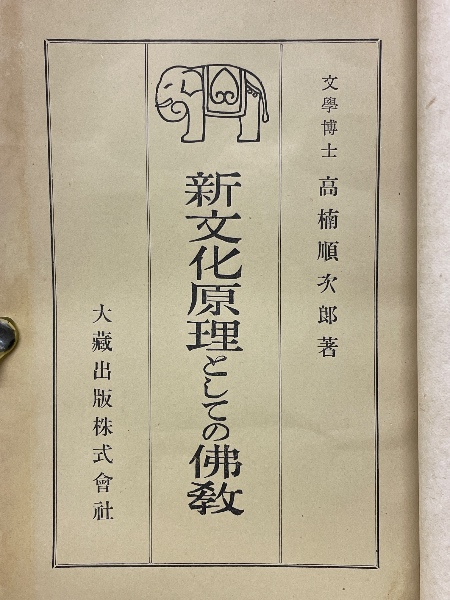 文學博士 高楠順次郎著
新文化原理としての佛教
大藏出版株式會社